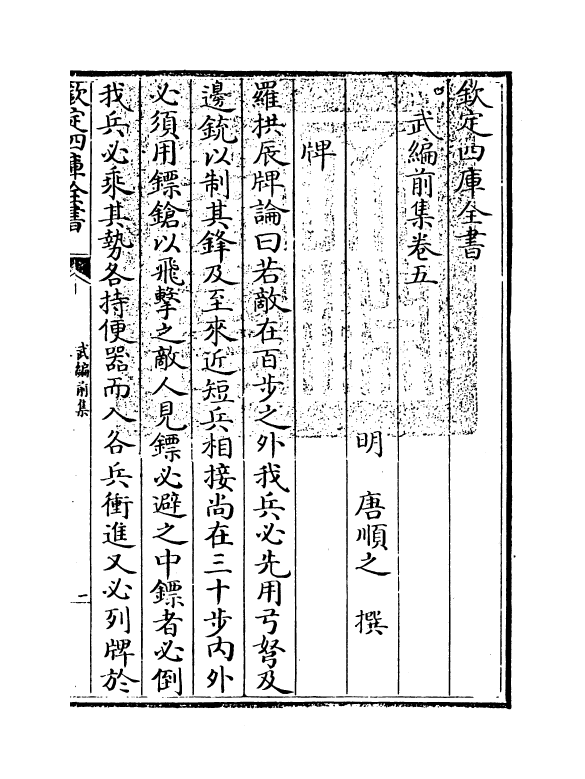 欽定四庫全書
武編前集卷五
明 唐順之 撰
牌
羅拱辰牌論曰若敵在百步之外我兵必先用弓弩及
邊銃以制其鋒及至來近短兵相接尚在三十步内外
必須用鏢鎗以飛擊之敵人見鏢必避之中鏢者必倒
我兵必乘其勢各持便器而入各兵衝進又必列牌於
欽定四庫全書
武編前集
二